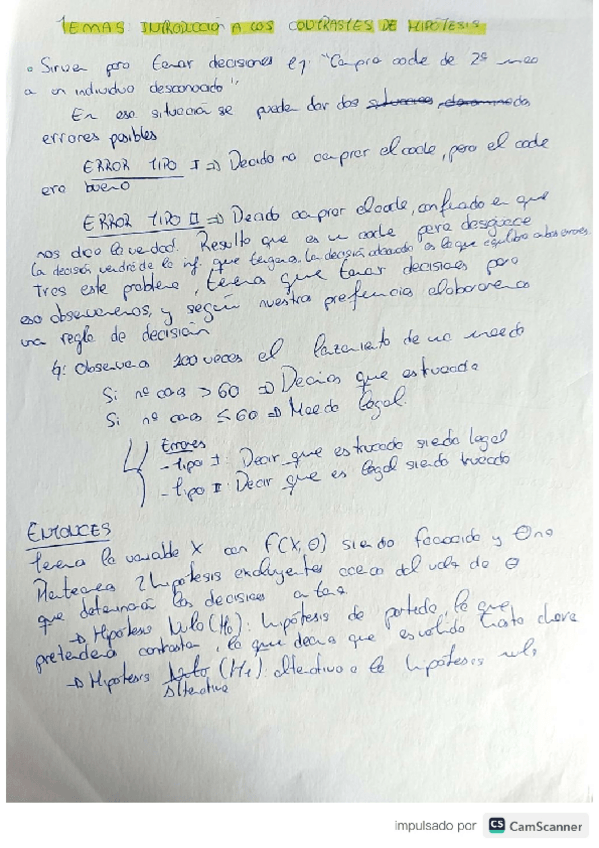 TEMA5: INTRODUCCIÓN A LOS CONTRASTES DE HIPÓTESIS
Sirven para tomar decisiones ej: "Compra coche de 2ª mano
a un individuo desconocido".
En esa situación se pueden dar dos
errores posibles
ERROR TIPO I => Decido no comprar el coche, pero el coche
era bueno
ERROR TIPO II => Decido comprar el coche, confiado en que
nos dice la verdad. Resulta que es un coche para desguace
La decisión vendrá de la inf. que tengamos. La decisión adecuada es la que equilibra ambos errores
Tras este problema, tenemos que tomar decisiones para
eso observaremos, y según nuestra preferencia elaboraremos
una regla de decisión
Ej: Observamos 100 veces el lanzamiento de una moneda
Si nº caras > 60 => Decimos que es trucada
Si nº caras ≤ 60 => Moneda legal.
Errores
- tipo I: Decir que es trucada siendo legal
- tipo II: Decir que es legal siendo trucada
ENTONCES
Tenemos la variable X con f(X, θ) siendo f conocida y θ no
Planteamos 2 hipótesis excluyentes acerca del valor de θ
que determinarán las decisiones a tomar
→ Hipótesis Nula (H₀): hipótesis de partida, la que
pretendemos contrastar, la que decimos que es válida hasta
→ Hipótesis Nula (H₁): alternativa a la hipótesis nula
Alternativa
impulsado por CS CamScanner